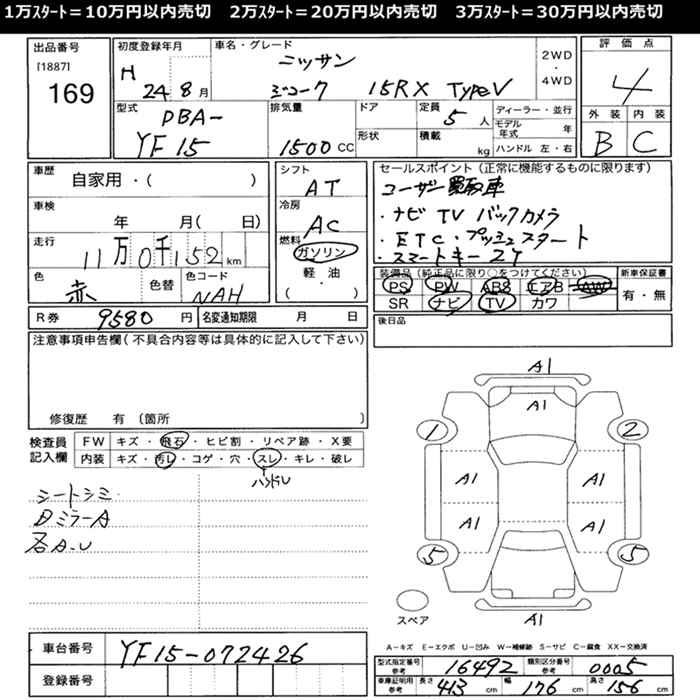 1万スタート=10万円以内売切 2万スタート=20万円以内売切 3万スタート=30万円以内売切
出品番号
[1887]
169
初度登録年月
H 24 8月
車名・グレード
ニッサン
ジューク 15RX TypeV
2WD
4WD
評価点
4
外装 内装
B C
型式
DBA-
YF15
排気量
1500 CC
ドア
形状
定員
5 人
積載
kg
ディーラー・並行
モデル年式 年
ハンドル 左・右
車歴
自家用・( )
車検
年 月( 日)
走行
11万0千152km
色
赤
色替
色コード
NAH
シフト
AT
冷房
AC
燃料
ガソリン
軽・油
( )
セールスポイント(正常に機能するものに限ります)
ユーザー買取車
・ナビ TV バックカメラ
・ETC・プッシュスタート
・スマートキー2ケ
装備品(純正品に限り○をつけてください)
PS PW ABS エアB AW
SR ナビ TV カワ
新車保証書
有・無
R券 9580 円
名変通知期限 月 日
後日品
注意事項申告欄(不具合内容等は具体的に記入して下さい)
修復歴 有(箇所 )
検査員記入欄
FW キズ・飛石・ヒビ割・リペア跡・X要
内装 キズ・汚レ・コゲ・穴・スレ・キレ・破レ
ハンドル
シートシミ
Dミラー A
A-U
A1
A1
1 2
A1 A1
A1 A1
5 5
スペア
A1
車台番号
YF15-072426
登録番号
A−キズ E−エクボ U−凹み W−補修跡 S−サビ C−腐食 XX−交換済
型式指定番号 参考 16492 類別区分番号 参考 0005
車庫証明用 参考 長さ 413 cm 幅 176 cm 高さ 156 cm